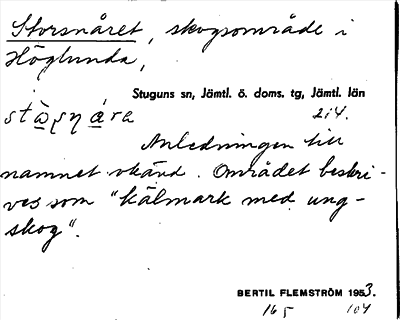 Storsnåret, skogsområde i
Höglunda,
Stuguns sn, Jämtl. ö. doms. tg, Jämtl. län
2/4.
Anledningen till
namnet okänd. Området beskri-
ves som "kälmark med ung-
skog".
BERTIL FLEMSTRÖM 1953.
165 104